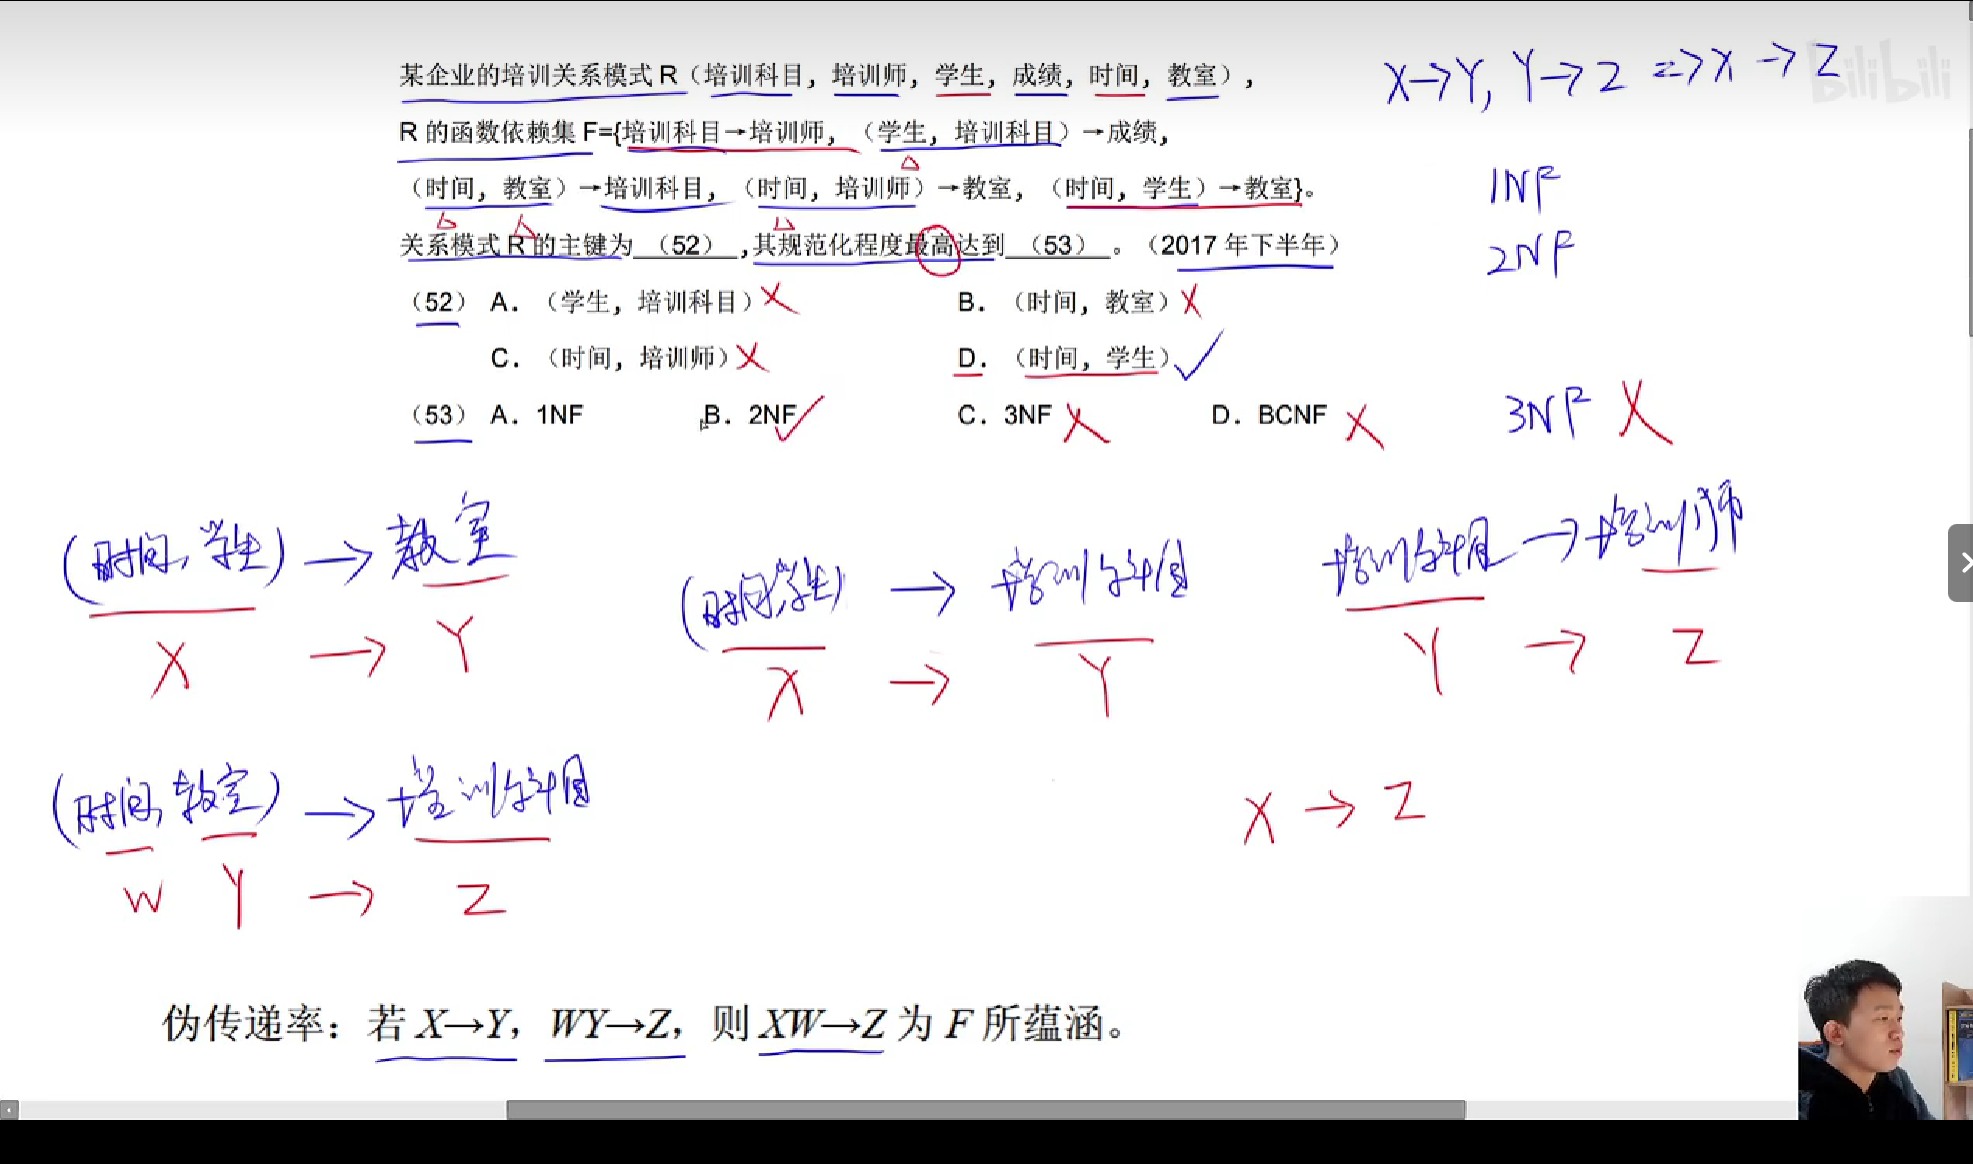 某企业的培训关系模式 R（培训科目，培训师，学生，成绩，时间，教室），
R 的函数依赖集 F={培训科目→培训师，（学生，培训科目）→成绩，
（时间，教室）→培训科目，（时间，培训师）→教室，（时间，学生）→教室}。
关系模式 R 的主键为 （52） ,其规范化程度最高达到 （53） 。（2017 年下半年）
（52） A. （学生，培训科目） B. （时间，教室）
C. （时间，培训师） D. （时间，学生）
（53） A. 1NF B. 2NF C. 3NF D. BCNF
X→Y, Y→Z => X→Z
bilibili
1NF
2NF
3NF X
(时间, 学生) → 教室
X → Y
(时间,学生) → 培训科目
X → Y
培训科目 → 培训师
Y → Z
(时间, 教室) → 培训科目
W Y → Z
X → Z
伪传递率：若 X→Y，WY→Z，则 XW→Z 为 F 所蕴涵。